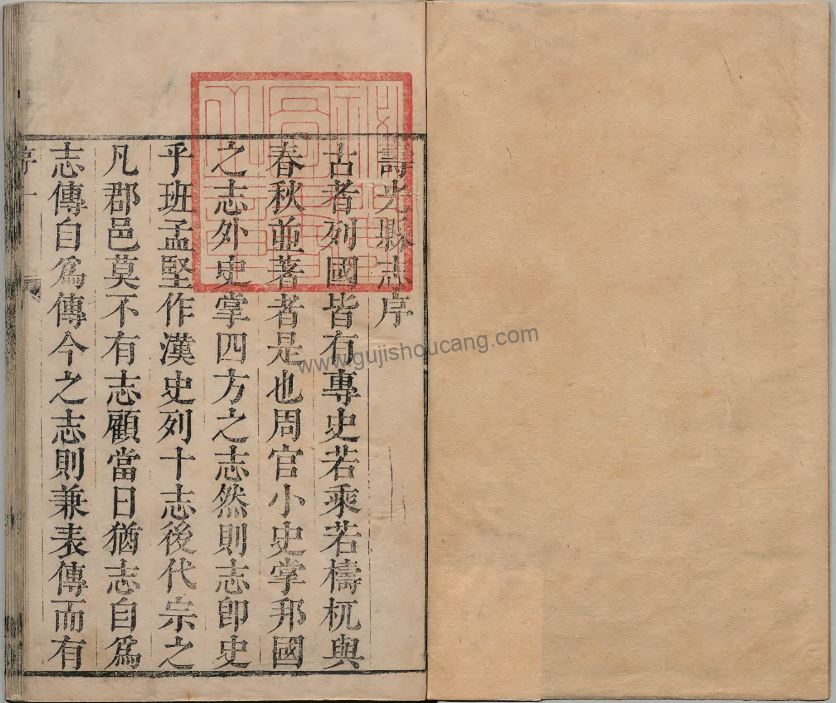 壽光縣志序
古者列國皆有專史若乘若檮杌與
春秋並著者是也周官小史掌邦國
之志外史掌四方之志然則志即史
乎班孟堅作漢史列十志後代宗之
凡郡邑莫不有志顧當日猶志自爲
志傳自爲傳今之志則兼表傳而有
序一
www.gujishoucang.com